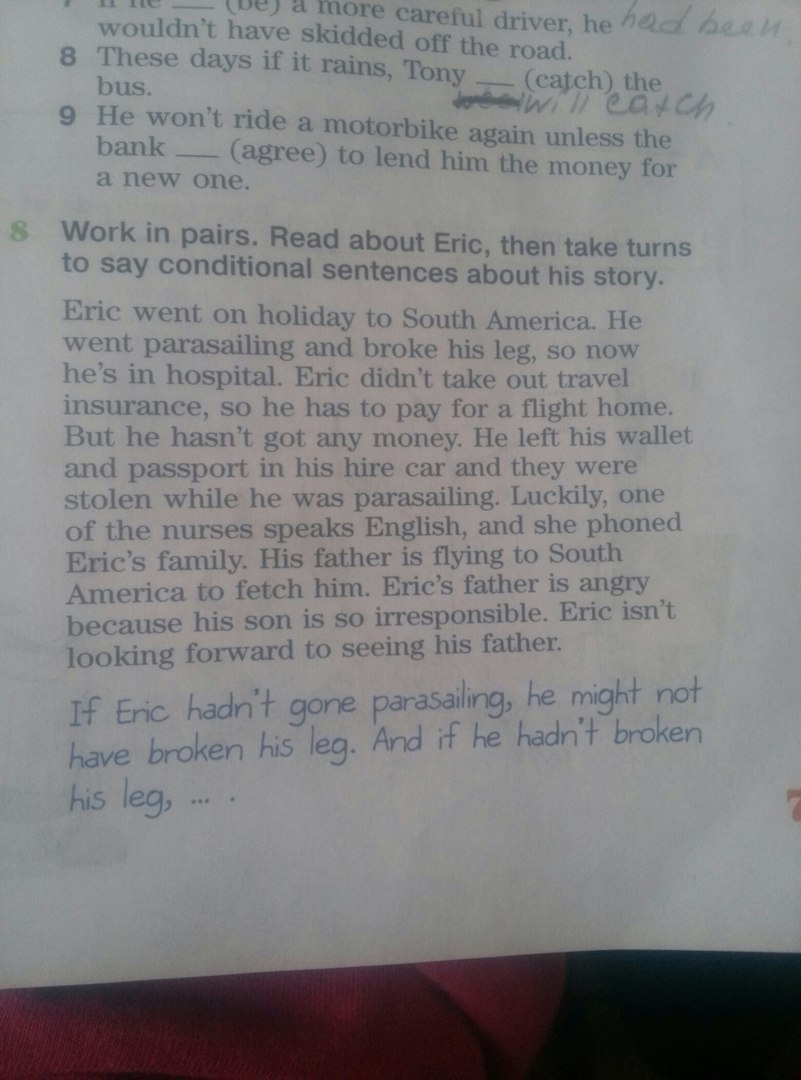 7 If he ___ (be) a more careful driver, he had been
wouldn't have skidded off the road.
8 These days if it rains, Tony ___ (catch) the
bus. will catch
9 He won't ride a motorbike again unless the
bank ___ (agree) to lend him the money for
a new one.
8 Work in pairs. Read about Eric, then take turns
to say conditional sentences about his story.
Eric went on holiday to South America. He
went parasailing and broke his leg, so now
he's in hospital. Eric didn't take out travel
insurance, so he has to pay for a flight home.
But he hasn't got any money. He left his wallet
and passport in his hire car and they were
stolen while he was parasailing. Luckily, one
of the nurses speaks English, and she phoned
Eric's family. His father is flying to South
America to fetch him. Eric's father is angry
because his son is so irresponsible. Eric isn't
looking forward to seeing his father.
If Eric hadn't gone parasailing, he might not
have broken his leg. And if he hadn't broken
his leg, ... .
7